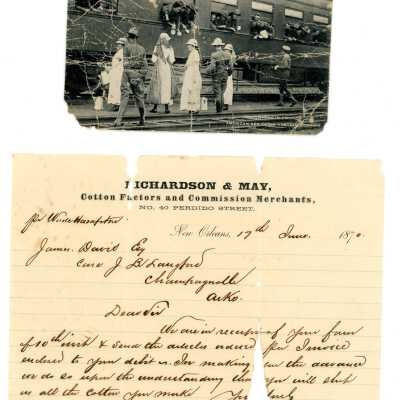 RICHARDSON & MAY,
Cotton Factors and Commission Merchants,
NO. 40 PERDIDO STREET.
per Wade Hampton
New Orleans, 17th June 1870.
James David Esq
Care J B Langford
Champagnolle
Arks.
Dear Sir
We are in receipt of your favor
of 10th inst & send the articles ordered per Invoice
enclosed to your debit. In making you the advance
we do so upon the understanding that you will ship
us all the cotton you make